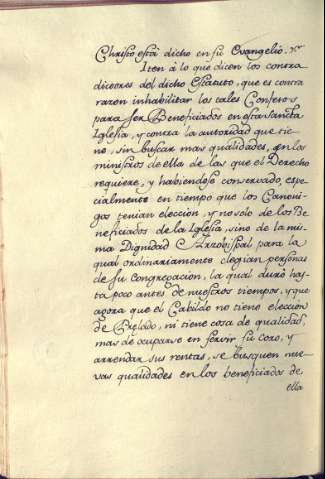 Christo está dicho en su Evangelio. Yᵗᵉ
Iten á lo que dicen los contra
dictores del dicho Estatuto, que es contra
razon inhabilitar los tales Confesos
para ser Beneficiados en esta sancta
Iglesia, y contra la autoridad que tie-
ne, sin buscar mas qualidades, en los
ministros de ella de las que el Derecho
requiere, y habiendose conservado, espe-
cialmente en tiempo que los Canoni-
gos tenian eleccion, y no solo de los Be
neficiados de la Iglesia, sino de la mis-
ma Dignidad Arzobispal para la
qual ordinariamente elegian personas
de su Congregacion, la qual duró has-
ta poco antes de nuestros tiempos, y que
agora que el Cabildo no tiene eleccion
de Prelado, ni tiene cosa de qualidad,
mas de ocuparse en servir su coro, y
arrendar sus rentas, se busquen nue-
vas qualidades en los beneficiados de
ella